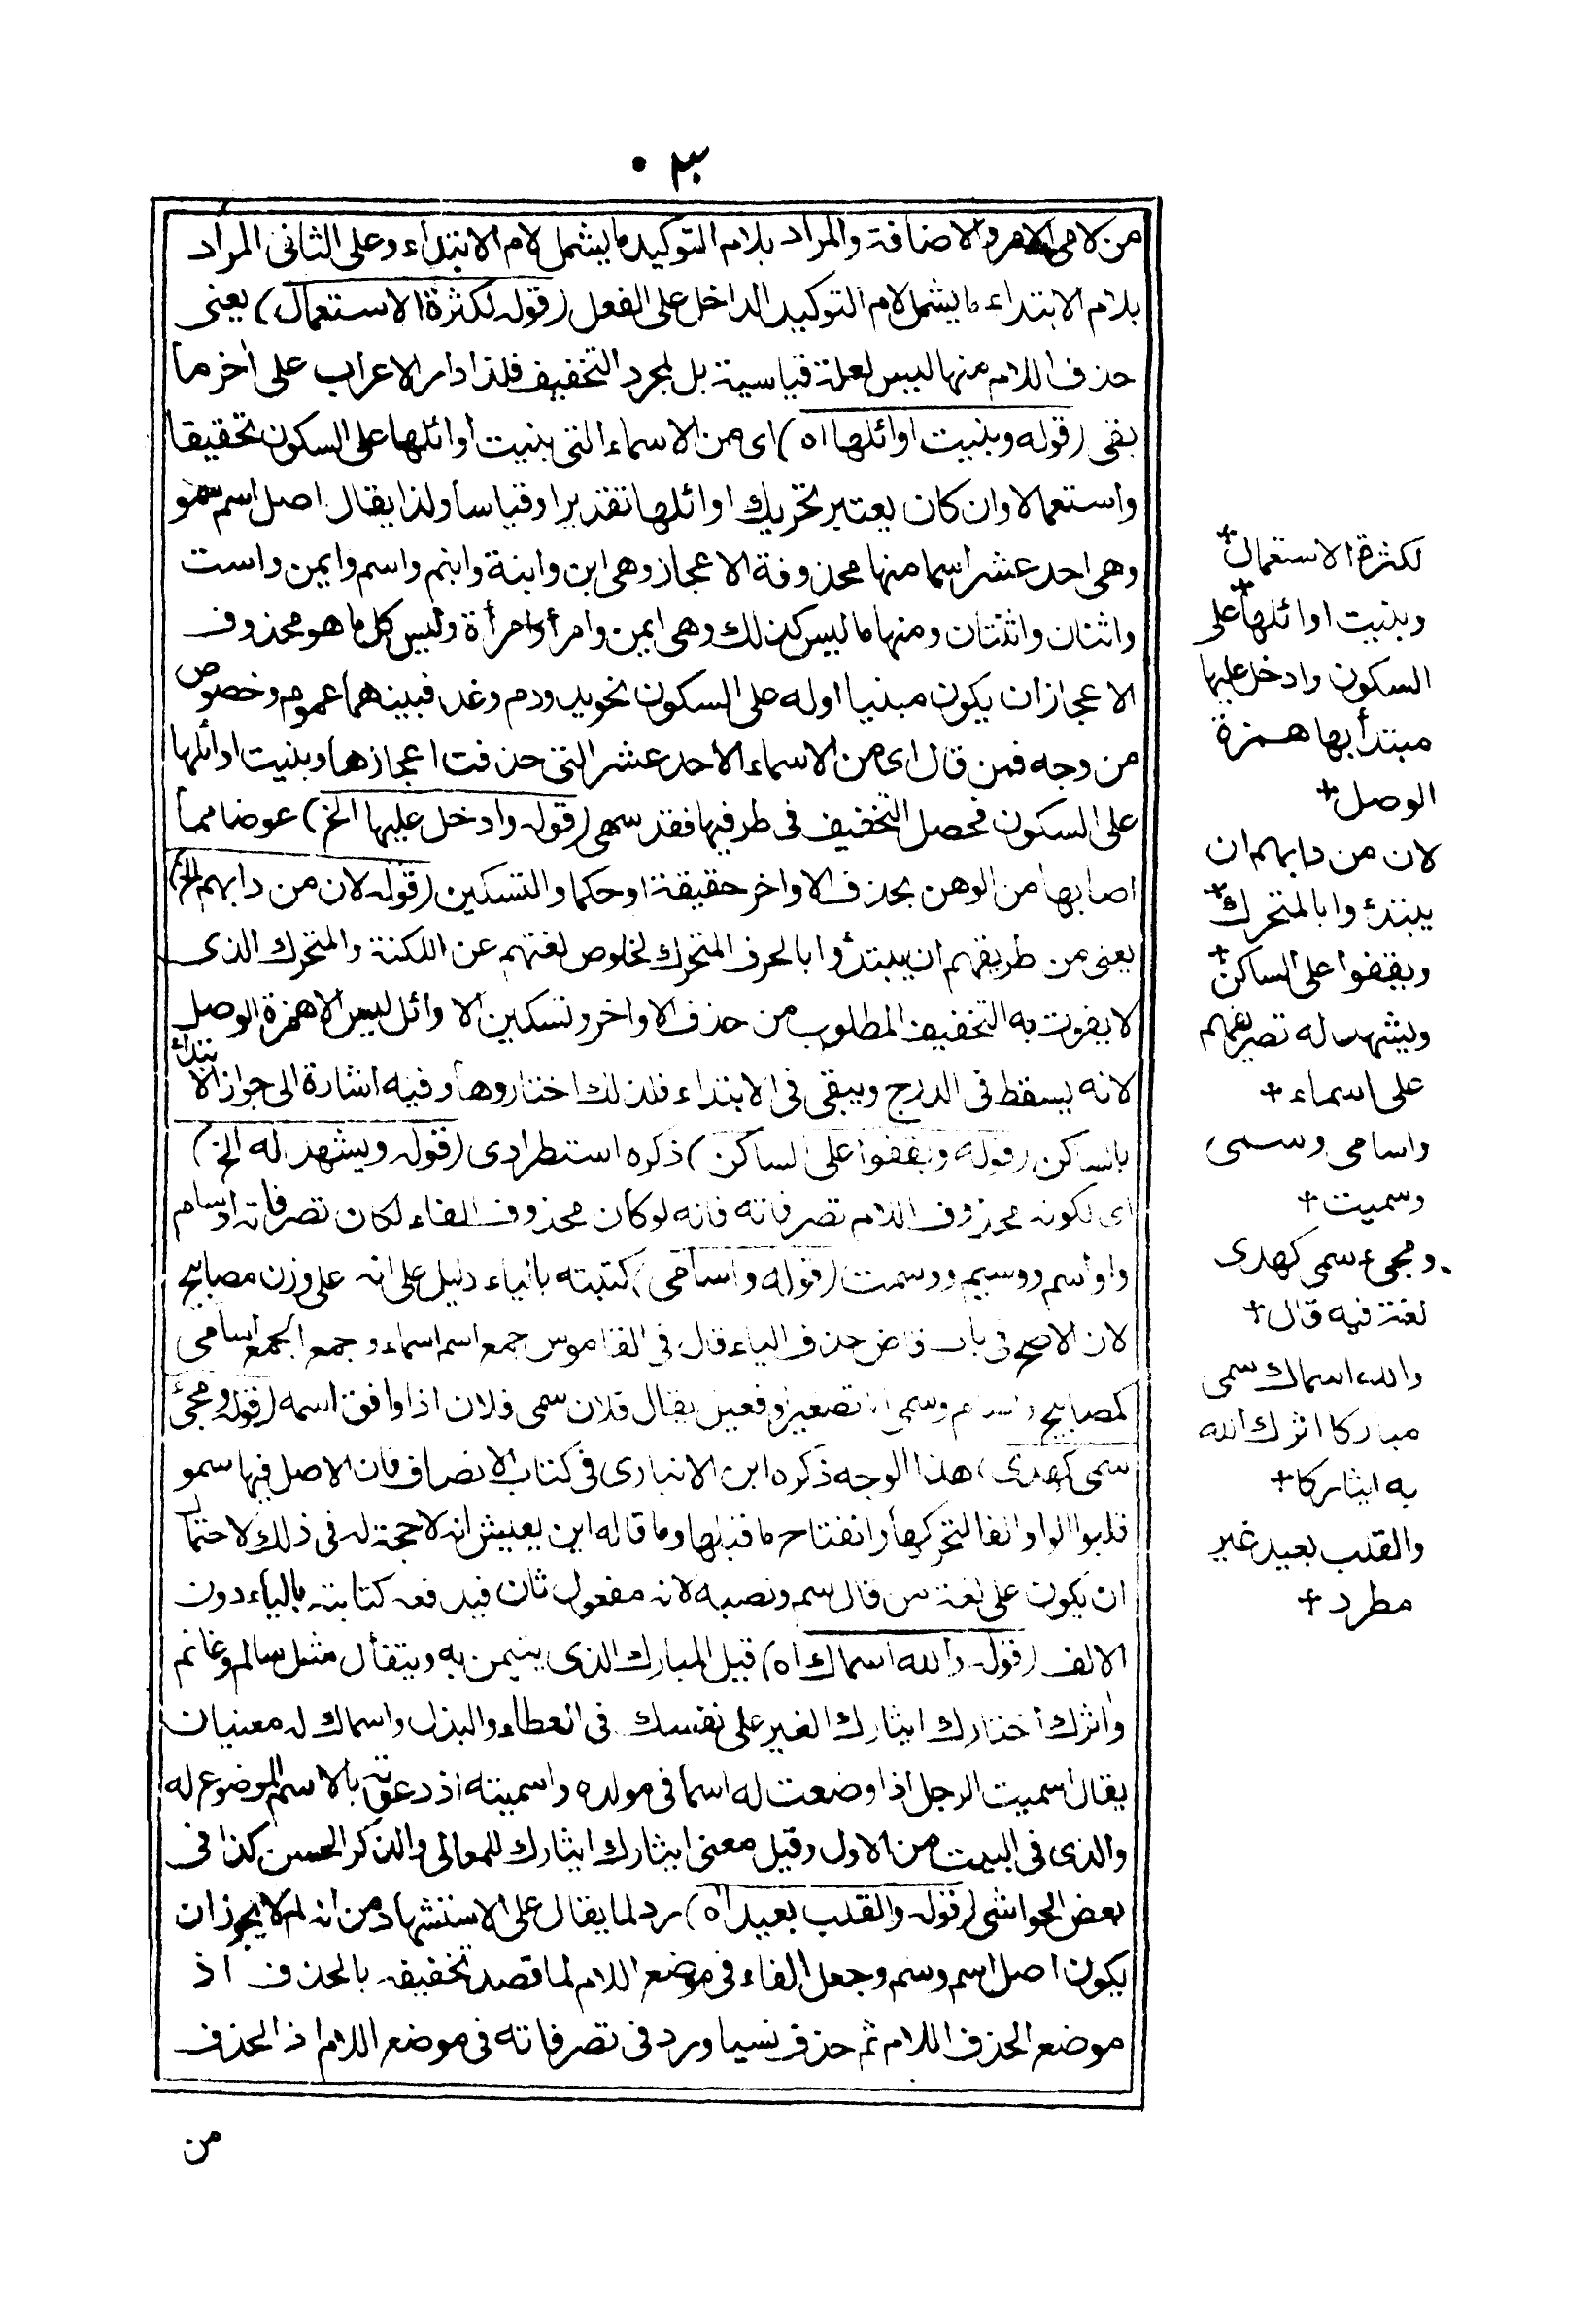 ٣٠
من لامى الامر والاضافة والمراد بلام التوكيد ما يشمل لام الابتداء وعلى الثانى المراد
بلام الابتداء ما يشمل لام التوكيد الداخل على الفعل (قوله لكثرة الاستعمال) يعنى
حذف اللام منها ليس لعلة قياسية بل لمجرد التخفيف فلذا دار الاعراب على اخر ما
بقى (قوله وبنيت اوائلها اه) اى من الاسماء التى بنيت اوائلها على السكون تحقيقا
واستعمالا وان كان يعتبر تحريك اوائلها تقديرا وقياسا ولذا يقال اصل اسم سمو
وهى احد عشر اسما منها محذوفة الاعجاز وهى ابن وابنة وابنم واسم وايمن واست
واثنان واثنتان ومنها ما ليس كذلك وهى ايمن وامرأ وامرأة وليس كل ما هو محذوف
الاعجاز ان يكون مبنيا اوله على السكون نحو يد ودم وغد فبينهما عموم وخصوص
من وجه فمن قال اى من الاسماء الاحد عشر التى حذفت اعجازها وبنيت اوائلها
على السكون فحصل التخفيف فى طرفيها فقد سهى (قوله وادخل عليها الخ) عوضا مما
اصابها من الوهن بحذف الاواخر حقيقة او حكما والتسكين (قوله لان من دابهم الخ)
يعنى من طريقهم ان يبتدؤا بالحرف المتحرك لخلوص لغتهم عن اللكنة والمتحرك الذى
لا يفوت به التخفيف المطلوب من حذف الاواخر وتسكين الاوائل ليس الا همزة الوصل
لانه يسقط فى الدرج ويبقى فى الابتداء فلذلك اختاروها وفيه اشارة الى جواز الابتداء
بالساكن (قوله ويقفوا على الساكن) ذكره استطرادى (قوله ويشهد له الخ)
اى لكونه محذوف اللام تصرفاته فانه لو كان محذوف الفاء لكان تصرفاته اوسام
واواسم ووسيم ووسمت (قوله واسامى) كتبته بالياء دليل على انه على وزن مصابيح
لان الاصح فى باب قاض حذف الياء قال فى القاموس جمع اسم اسماء وجمع الجمع اسامى
كمصابيح وسمى تصغير وفعيل يقال فلان سمى فلان اذا وافق اسمه (قوله ومجئ
سمى كهدى) هذا الوجه ذكره ابن الانبارى فى كتاب الانصاف فان الاصل فيها سمو
قلبوا الواو الفا لتحركها وانفتاح ما قبلها وما قاله ابن يعيش انه لا حجة له فى ذلك لاحتمال
ان يكون على لغة من قال سم ونصبه لانه مفعول ثان فيدفعه كتابته بالياء دون
الالف (قوله والله اسماك اه) قيل المبارك الذى يتيمن به ويتفأل مثل سالم وغانم
واثرك اختارك ايثارك الغير على نفسك فى العطاء والبذل واسماك له معنيان
يقال اسميت الرجل اذا وضعت له اسما فى مولده واسميته اذ دعوته بالاسم الموضوع له
والذى فى البيت من الاول وقيل معنى ايثارك ايثارك للمعالى والذكر الحسن كذا فى
بعض الحواشى (قوله والقلب بعيد اه) رد لما يقال على الاستشهاد من انه لم لا يجوز ان
يكون اصل اسم وسم وجعل الفاء فى موضع اللام لما قصد تخفيفه بالحذف اذ
موضع الحذف اللام ثم حذف نسيا ورد فى تصرفاته فى موضع اللام اذ الحذف
من
لكثرة الاستعمال+
وبنيت اوائلها+ على
السكون وادخل عليها
مبتدأ بها همزة
الوصل+
لان من دابهم ان
يبتدؤا بالمتحرك+
ويقفوا على الساكن+
ويشهد له تصريفهم
على اسماء+
واسامى وسمى
وسميت+
ومجىء سمى كهدى
لغة فيه قال+
والله اسماك سمى
مباركا اثرك الله
به ايثاركا+
والقلب بعيد غير
مطرد+